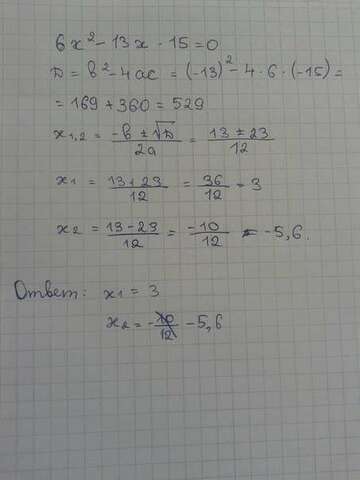 6x² - 13x - 15 = 0
D = b² - 4ac = (-13)² - 4 · 6 · (-15) =
= 169 + 360 = 529
x₁,₂ = (-b ± √D)/2a = (13 ± 23)/12
x₁ = (13 + 23)/12 = 36/12 = 3
x₂ = (13 - 23)/12 = -10/12 = -5,6.
Ответ: x₁ = 3
x₂ = -10/12 -5,6